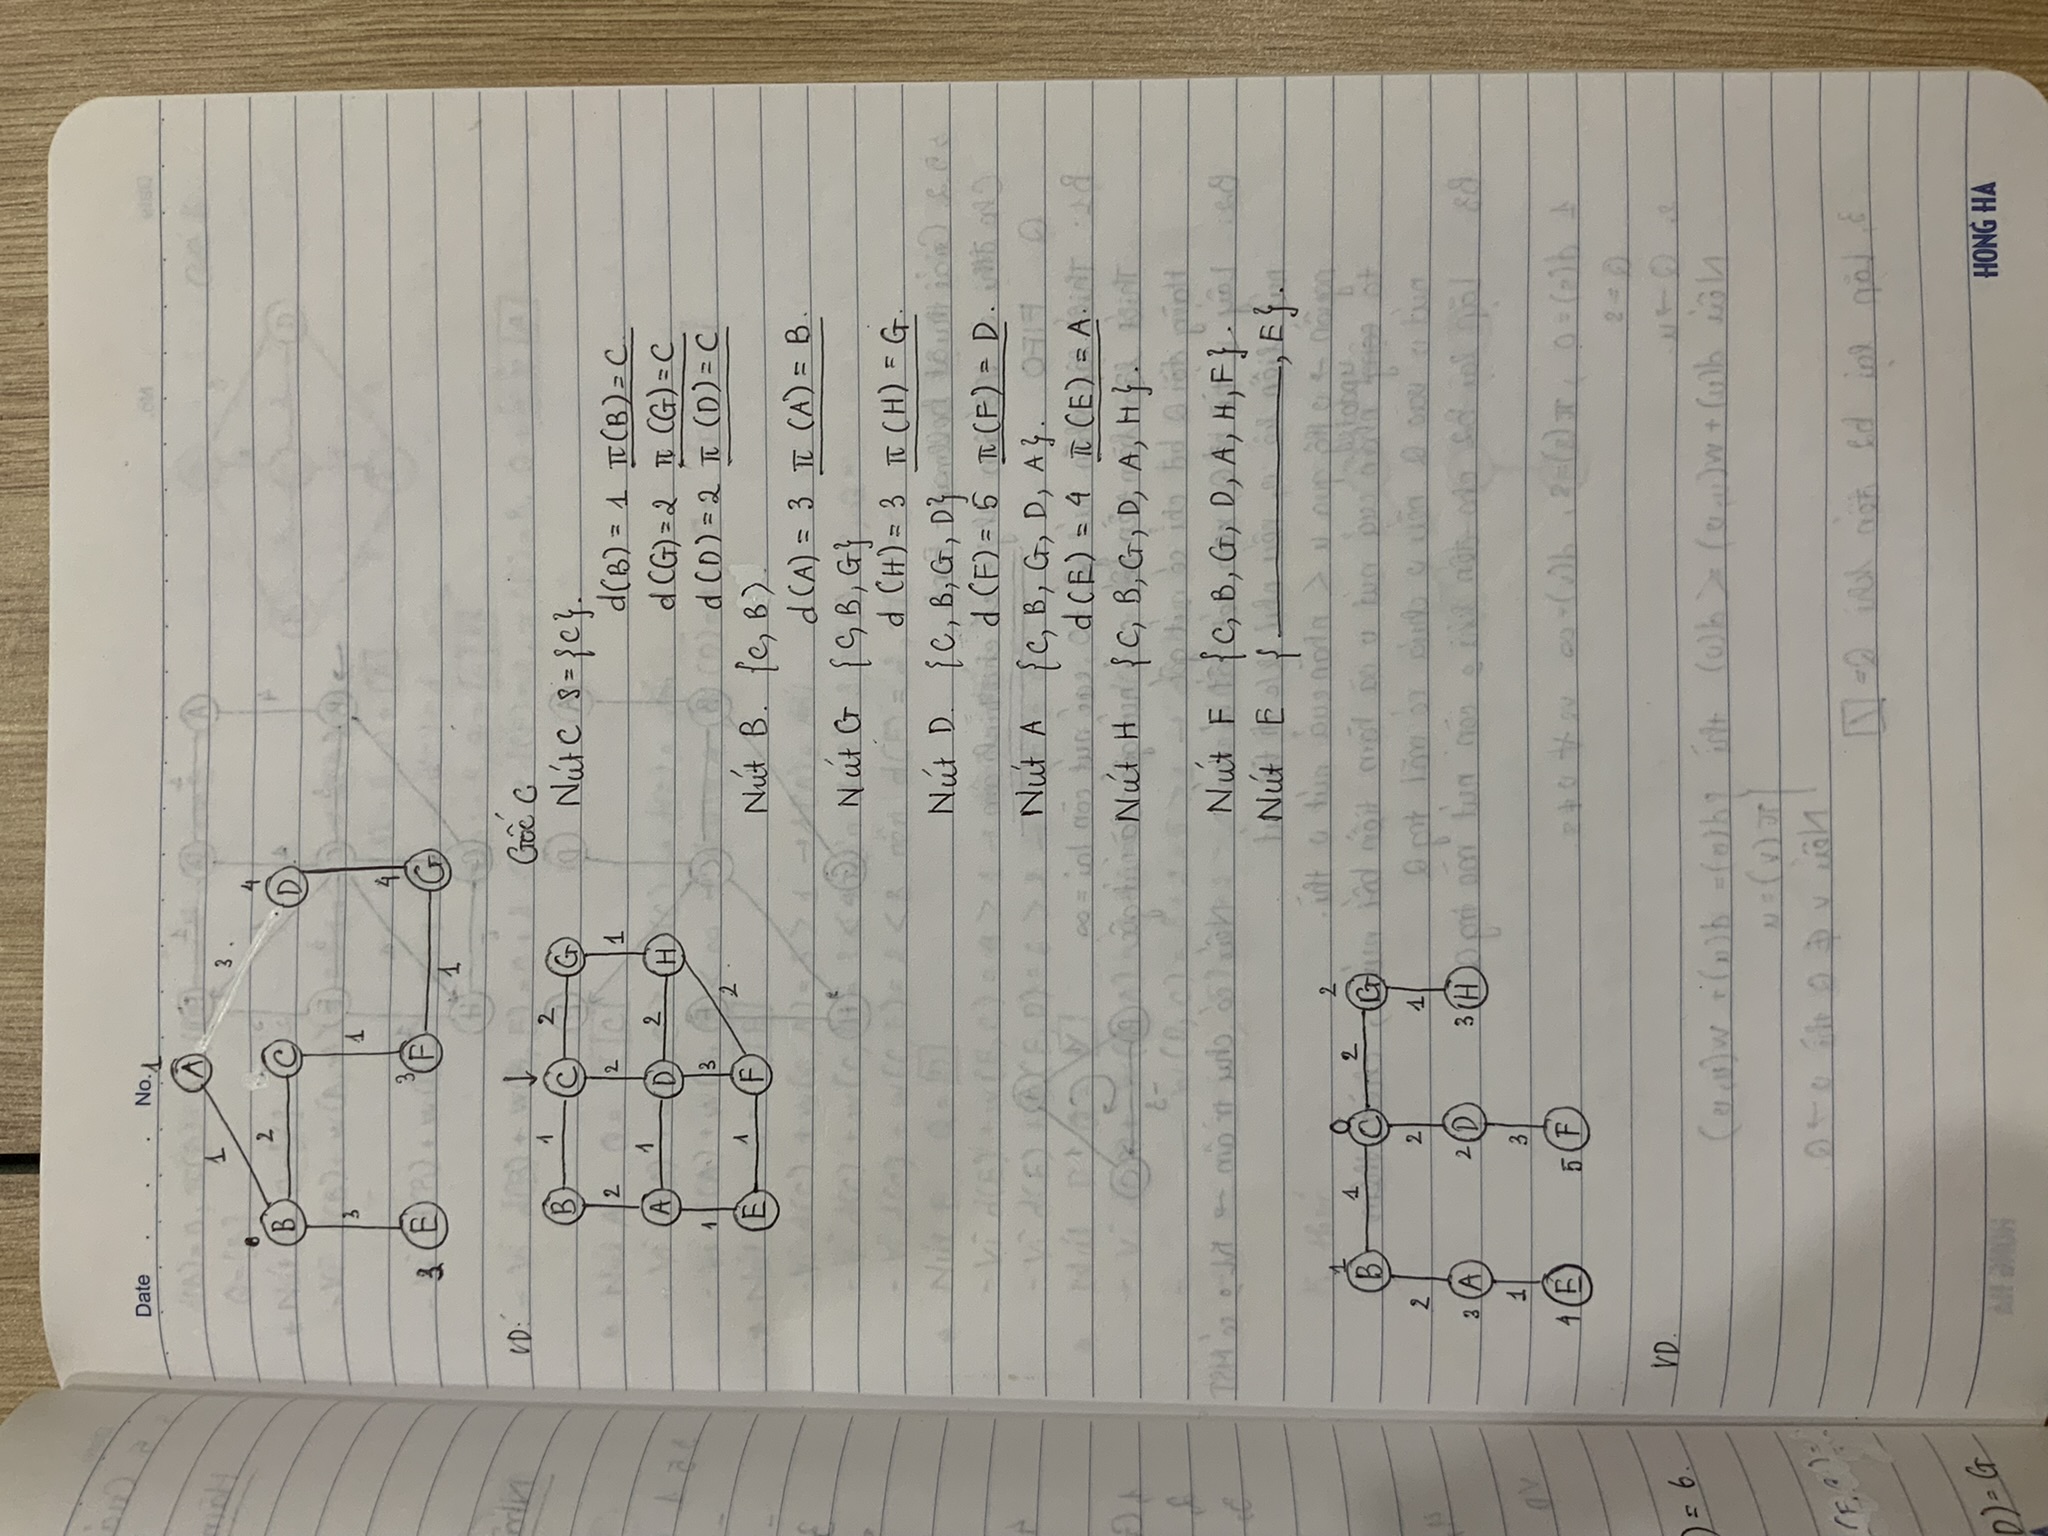 Date No.
1
A
1
3
B
2
C
4
D
3
1
4
3
E
3
F
1
G
VD:
Gốc C
B 1 C 2 G
2 2 1
A 1 D 2 H
1 3 2
E 1 F
Nút C S = {C}.
d(B) = 1 π(B) = C
d(G) = 2 π(G) = C
d(D) = 2 π(D) = C
Nút B. {C, B}.
d(A) = 3 π(A) = B.
Nút G {C, B, G}
d(H) = 3 π(H) = G.
Nút D. {C, B, G, D}
d(F) = 5 π(F) = D.
Nút A {C, B, G, D, A}.
d(E) = 4 π(E) = A.
Nút H {C, B, G, D, A, H}.
Nút F {C, B, G, D, A, H, F}.
Nút E { , E}.
1 0 2
B 1 C 2 G
2 2 1
3 A 2 D 3 H
1 3
4 E 5 F
VD.
) = 6.
D) = G
HONG HA